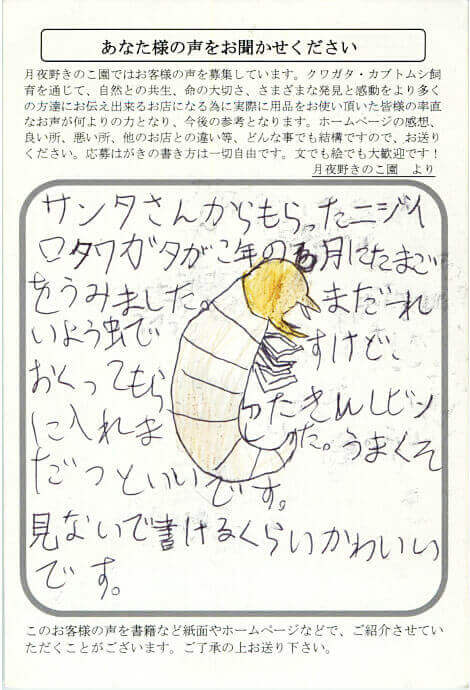 あなた様の声をお聞かせください
月夜野きのこ園ではお客様の声を募集しています。クワガタ・カブトムシ飼
育を通じて、自然との共生、命の大切さ、さまざまな発見と感動をより多く
の方達にお伝え出来るお店になる為に実際に用品をお使い頂いた皆様の率直
なお声が何よりの力となり、今後の参考となります。ホームページの感想、
良い所、悪い所、他のお店との違い等、どんな事でも結構ですので、お送り
ください。応募はがきの書き方は一切自由です。文でも絵でも大歓迎です！
月夜野きのこ園　より
サンタさんからもらったニジイ
ロクワガタがこ年の6月にたまご
をうみました。まだ一れ
いよう虫ですけど、
おくってもらったきんしビン
に入れました。うまくそ
だつといいです。
見ないで書けるくらいかわいい
です。
このお客様の声を書籍など紙面やホームページなどで、ご紹介させてい
ただくことがございます。ご了承の上お送り下さい。